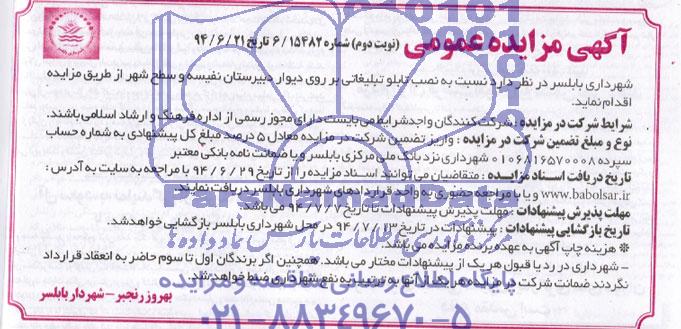 آگهی مزایده عمومی (نوبت دوم) شماره ۶/۱۵۴۸۲ تاریخ ۹۴/۶/۲۱
شهرداری بابلسر در نظر دارد نسبت به نصب تابلو تبلیغاتی بر روی دیوار دبیرستان نفیسه و سطح شهر از طریق مزایده
اقدام نماید.
شرایط شرکت در مزایده : شرکت کنندگان واجد شرایط می بایست دارای مجوز رسمی از اداره فرهنگ و ارشاد اسلامی باشند.
نوع و مبلغ تضمین شرکت در مزایده : واریز تضمین شرکت در مزایده معادل ۵ درصد مبلغ کل پیشنهادی به شماره حساب
سپرده ۰۱۰۶۸۱۶۵۷۰۰۰۸ شهرداری نزد بانک ملی مرکزی بابلسر و یا ضمانت نامه بانکی معتبر
تاریخ دریافت اسناد مزایده : متقاضیان می توانند اسناد مزایده را از تاریخ ۹۴/۶/۲۹ با مراجعه به سایت به آدرس :
www.babolsar.ir و یا با مراجعه حضوری به واحد قراردادهای شهرداری بابلسر دریافت نمایند.
مهلت پذیرش پیشنهادات : مهلت پذیرش پیشنهادات تا تاریخ ۹۴/۷/۷ می باشد.
تاریخ بازگشایی پیشنهادات : پیشنهادات در تاریخ ۹۴/۷/۱۳ در محل شهرداری بابلسر بازگشایی خواهد شد.
* هزینه چاپ آگهی به عهده برنده مزایده می باشد.
- شهرداری در رد یا قبول هر یک از پیشنهادات مختار می باشد. همچنین اگر برندگان اول تا سوم حاضر به انعقاد قرارداد
نگردند ضمانت شرکت در مزایده هر یک از آنها به ترتیب به نفع شهرداری ضبط خواهد شد.
بهروز رنجبر - شهردار بابلسر
ParsNamadData
پایگاه اطلاع رسانی مناقصه و مزایده
۰۲۱-۸۸۳۴۹۶۷۰-۵